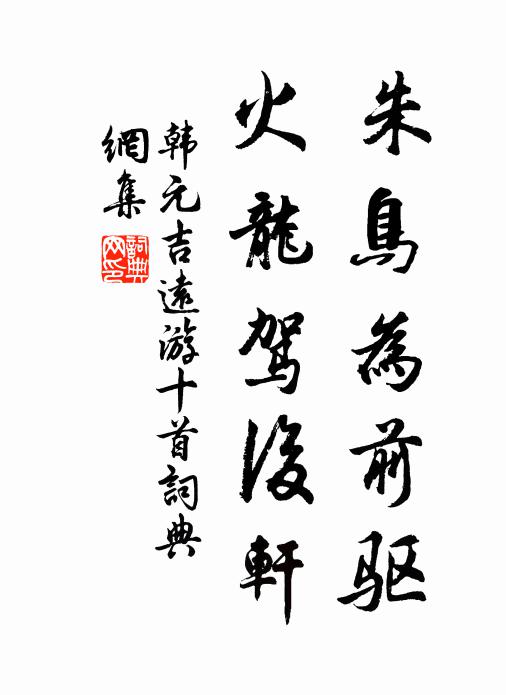 朱鳥為前驱
火龍駕後軒
韩元吉遠游十首詞典
網集
詞典
网印